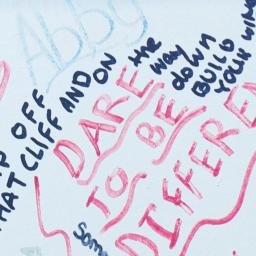 Abby
P OFF
HAT CLIFF AND ON
the
way
down
BUILD
YOUR WING
DARE
TO BE
DIFFERE
DIFFERE
Som